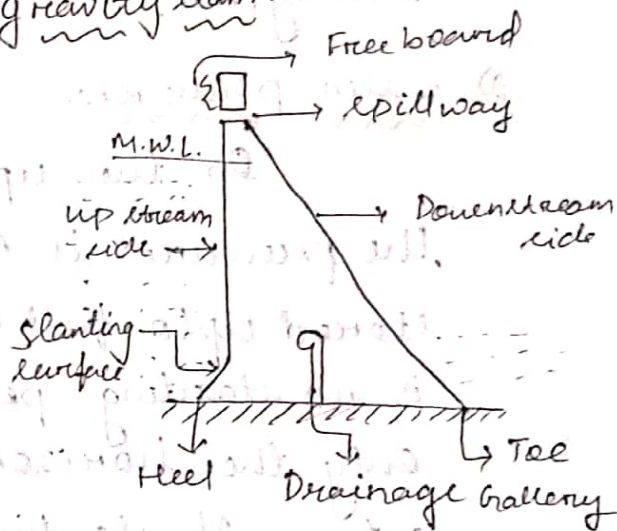 gravity dam
Freeboard
spillway
M.W.L.
up stream
side
Downstream
side
slanting
surface
Heel
Drainage Gallery
Toe